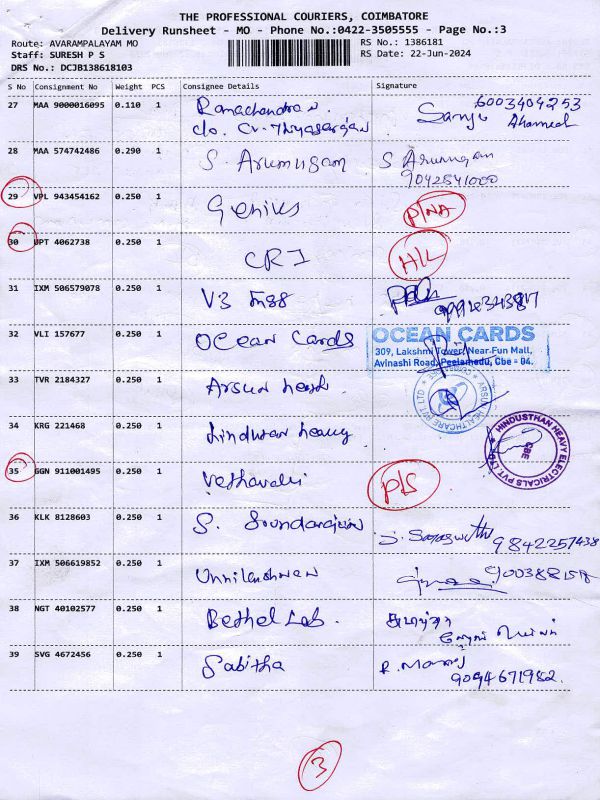 THE PROFESSIONAL COURIERS, COIMBATORE
Delivery Runsheet - MO - Phone No.:0422-3505555 - Page No.:3
Route: AVARAMPALAYAM MO
RS No.: 1386181
Staff: SURESH P S
RS Date: 22-Jun-2024
DRS No.: DCJB138618103
S No Consignment No Weight PCS Consignee Details Signature
27 MAA 9000016095 0.110 1 Ramachandran 6003404253
c/o. Sanju Ahamed
28 MAA 574742486 0.290 1 S. Arumugam S Arumugam
9042541000
29 VPL 943454162 0.250 1 Genius P/NA
30 UPT 4062738 0.250 1 CRI H/L
31 IXM 506579078 0.250 1 V3
32 VLI 157677 0.250 1 Ocean Cards OCEAN CARDS
309, Lakshmi Tower, Near Fun Mall,
Avinashi Road, Peelamedu, Cbe = 04.
33 TVR 2184327 0.250 1 ARSUN HEALTHCARE PVT LTD
34 KRG 221468 0.250 1 hindustan heavy HINDUSTHAN HEAVY ELECTRICALS PVT. LTD
CBE
35 GGN 911001495 0.250 1 Vethavalli P/S
36 KLK 8128603 0.250 1 S. Soundararajan S. Saraswathi
9842257438
37 IXM 506619852 0.250 1 Unnikrishnan
38 NGT 40102577 0.250 1 Bethel Lab.
39 SVG 4672456 0.250 1 Sabitha R. Manoj
9094671982.
3